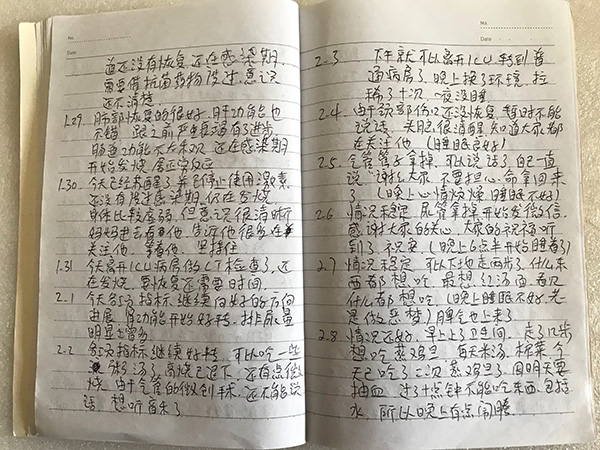 No.
Date
道还没有恢复, 还在感染期,
需要借抗菌药物度过, 意识
还不清楚
1.29. 肺部恢复的很好, 肝功能也
不错, 跟之前严重
肠道功能不太乐观, 还在感染期
开始发烧属正常反应
1.30. 今天已经苏醒了, 并已停止使用激素
还没有度过感染期, 仍在发烧
身体比较虚弱, 但意识很清晰
妈妈进去看看他, 告诉他很多在
关注他, 等着他, 坚持住
1.31 今天离开ICU病房做CT检查了, 还
在发烧, 要恢复还需要时间.
2-1 今天各项指标继续向好的方向
进展, 肾功能开始好转, 排尿量
明显增多
2-2 各项指标继续好转, 可以吃一些
汤了, 高烧已退下, 还有点低
烧, 由于气管的微创手术, 还不能说
话, 想听音乐了.
No.
Date
2-3 下午就可以离开ICU, 转到普
通病房了, 晚上换了环境, 拉
稀了十次, 一夜没睡
2.4. 由于颈部伤口还没恢复, 暂时不能
说话, 头脑很清醒, 知道大家都
在关注他 (睡眠良好)
2.5. 气管管子拿掉, 可以说话了, 自己一直
说: "谢谢大家, 不要担心, 命拿回来
了 (晚上心情烦燥, 睡眠不好)
2.6 情况稳定, 尿管拿掉, 开始发微信.
感谢大家的关心, 大家的祝福听
到了, 祝安 (晚上6点半开始睡着了)
2.7 情况稳定, 可以下地走两步了, 什么东
西都想吃, 最想: 红汤面, 看见
什么都想吃, (晚上睡眠不好, 老
是做恶梦) 脾气也上来了
2.8 情况还好, 早上上了卫生间, 走了几步
想吃蒸鸡蛋 每天米汤, 榨菜, 今
天已吃了二次蒸鸡蛋了, 因明天要
抽血, 过了十点钟不能吃东西, 包括
水, 所以晚上有点闹腾